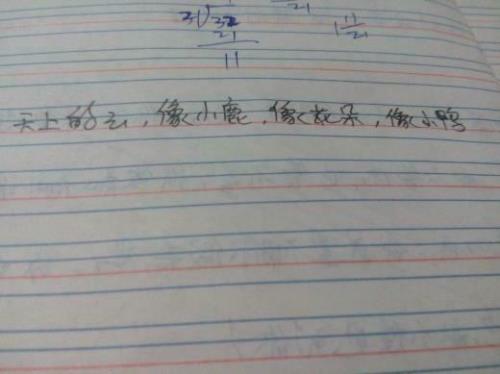 21
21
32
1 11/21
21
11
天上的云，像小鹿，像花朵，像小鸭